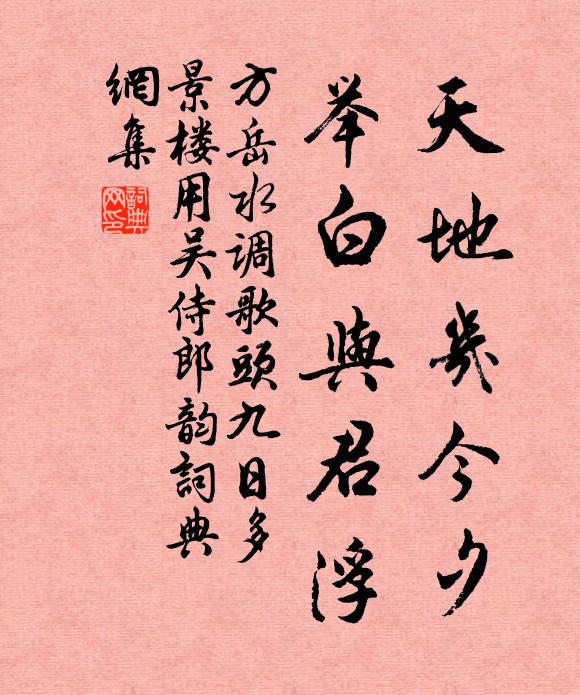 天地幾今夕
举白與君浮
方岳水调歌頭九日多
景楼用吴侍郎韵詞典
網集
詞典网印